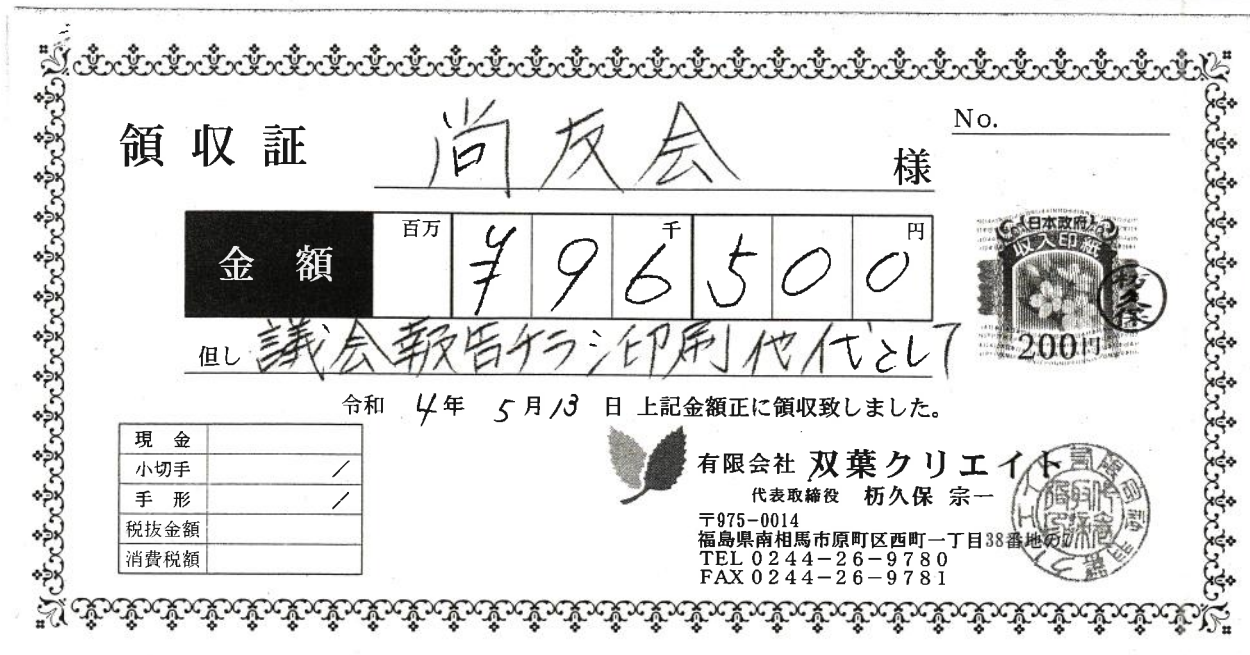 領収証 尚友会 様
No.
金額 百万 千 円
¥96500
日本政府
収入印紙
200円
但し 議会報告チラシ印刷代として
令和 4年 5月13日 上記金額正に領収致しました。
現金
小切手 /
手形 /
税抜金額
消費税額
有限会社 双葉クリエイト
代表取締役 枥久保 宗一
〒975-0014
福島県南相馬市原町区西町一丁目38番地の
TEL 0244-26-9780
FAX 0244-26-9781